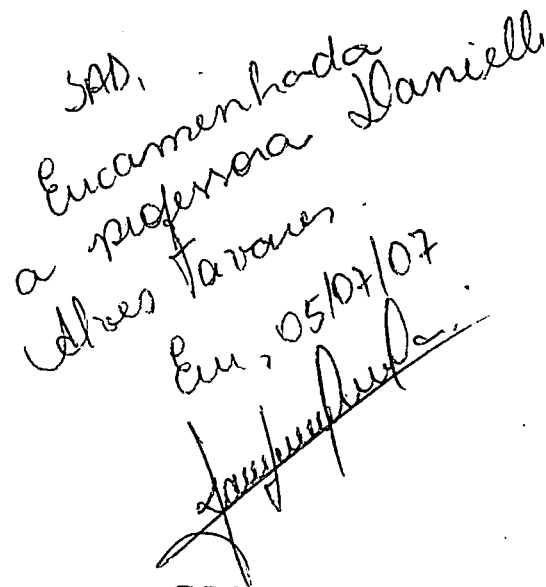 SAD,
Encamenhada
a professora Danielle
Alves Tavares.
Em, 05/07/07